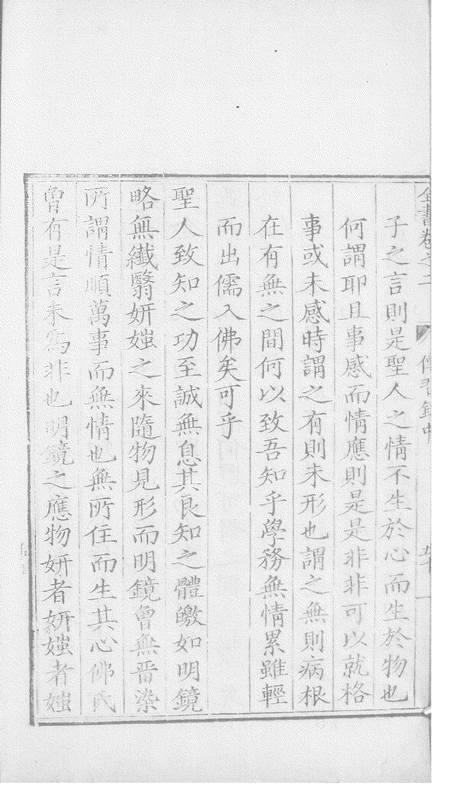 全書卷之二 傳習錄中
子之言則是聖人之情不生於心而生於物也
何謂耶且事感而情應則是是非非可以就格
事或未感時謂之有則未形也謂之無則病根
在有無之間何以致吾知乎學務無情累雖輕
而出儒入佛矣可乎
聖人致知之功至誠無息其良知之體皦如明鏡
略無纖翳妍媸之來隨物見形而明鏡曾無畱染
所謂情順萬事而無情也無所住而生其心佛氏
曾有是言未爲非也明鏡之應物妍者妍媸者媸